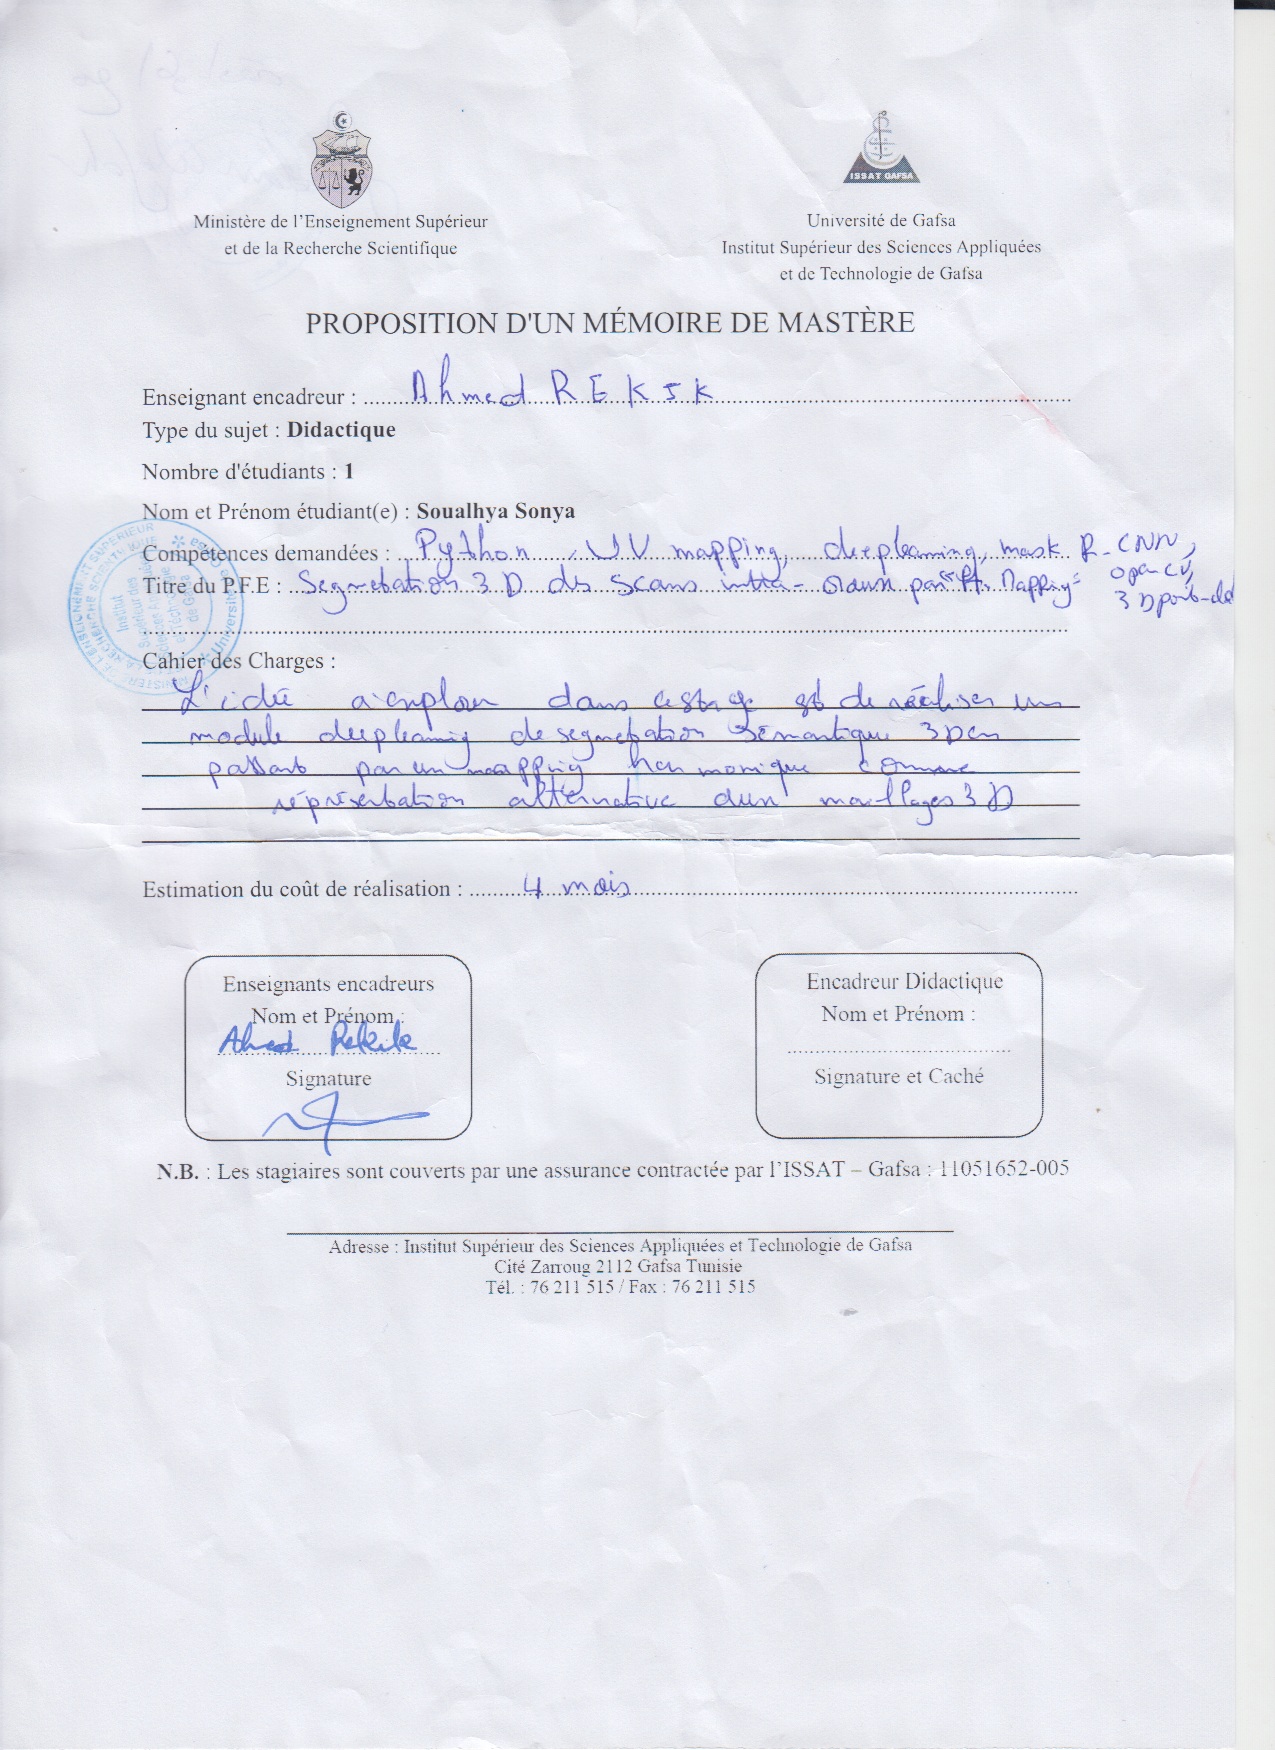 ISSAT GAFSA
Ministère de l'Enseignement Supérieur
et de la Recherche Scientifique
Université de Gafsa
Institut Supérieur des Sciences Appliquées
et de Technologie de Gafsa
PROPOSITION D'UN MÉMOIRE DE MASTÈRE
Enseignant encadreur : Ahmed REKIK
Type du sujet : Didactique
Nombre d'étudiants : 1
Nom et Prénom étudiant(e) : Soualhya Sonya
Compétences demandées : Python, UV mapping, deeplearning, mask R-CNN,
open CV,
Titre du P.F.E : Segmetation 3D des scans intra- par Mapping"
Cahier des Charges :
L'idée a explorer dans ce stage est de réaliser un
module deeplearning de segmetation sémantique 3D en
passant par un mapping harmonique comme
réprésentation alternative d'un maillages 3D
Estimation du coût de réalisation : 4 mois
Enseignants encadreurs
Nom et Prénom :
Ahmed Rekik
Signature
Encadreur Didactique
Nom et Prénom :
Signature et Caché
N.B. : Les stagiaires sont couverts par une assurance contractée par l'ISSAT – Gafsa : 11051652-005
Adresse : Institut Supérieur des Sciences Appliquées et Technologie de Gafsa
Cité Zarroug 2112 Gafsa Tunisie
Tél. : 76 211 515 / Fax : 76 211 515